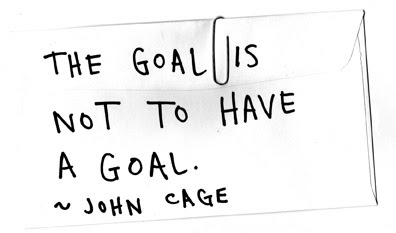 THE GOAL IS
NOT TO HAVE
A GOAL.
~ JOHN CAGE